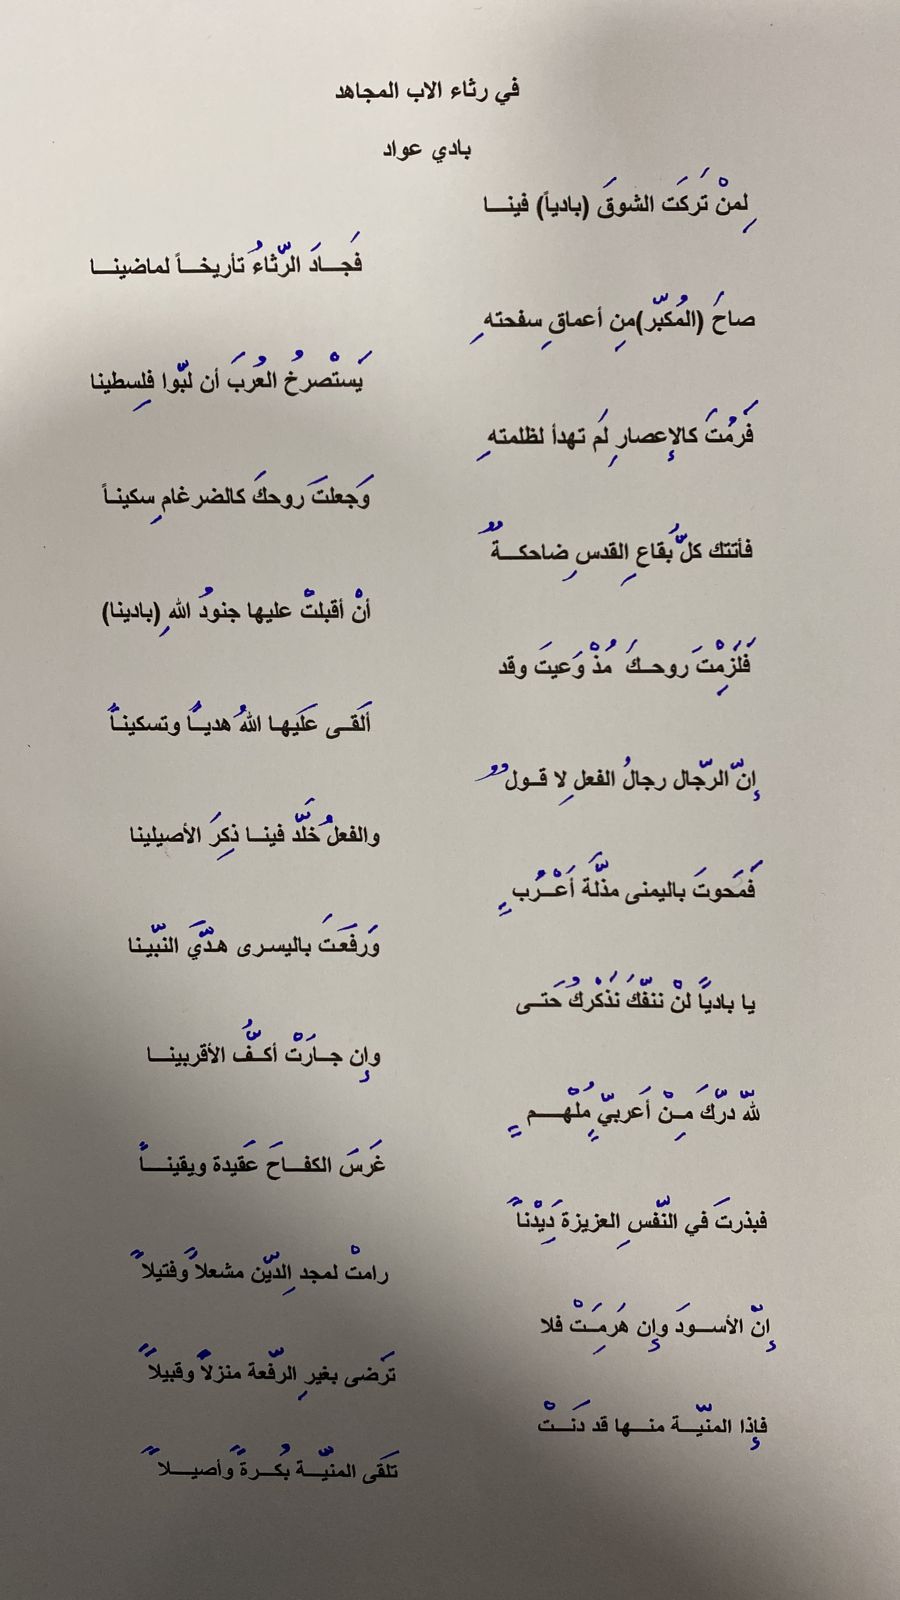 في رثاء الاب المجاهد
بادي عواد
لِمنْ تَركَت الشوقَ (بادياً) فينـــا
فَجـــادَ الرّثاءُ تأريخـــاً لماضينـــا
صاحَ (المُكبّر)منِ أعماقِ سفحتهِ
يَستْصرخُ العُربَ أن لبّوا فلِسطينا
فَرمُتَ كالإعصارِ لَم تهدأ لظلمتهِ
وَجعلتَ روحكَ كالضرغامِ سكينـاً
فأتتك كلُّ بُقاعِ القدسِ ضاحكـــةٌ
أنْ أقبلتْ عليها جنودُ اللهِ (بادينا)
فَلَزِمْتَ روحــكَ مُذْ وَعيتَ وقد
ألَقــى عَلَيهـا اللهُ هديـــاً وتسكينــاً
إنّ الرّجال رجالُ الفعلِ لا قــولٌ
والفعلُ خلَّد فينـــا ذكِرَ الأصيلينا
فَمَحوتَ باليمنى مذلَّة أَعْـــرُبٍ
وَرفَعَتَ باليسـرى هـدَّيَ النبّينـا
يا بادياً لنْ ننفّكَ نَذْكركُ حَتــى
وإن جــارَتْ أكــفُّ الأقربينـــا
للهّ درّكَ مِــنْ أَعربيّ ٍ مُلْهــــمٍ
غَرسَ الكفـــاحَ عَقيدة ويقينــــاً
فبذرتَ في النّفسِ العزيزة دَيِدْناً
رامتْ لمجد الِدّين مشعلاً وفتيلاً
إنّ الأســـودَ وإن هَرمَِتْ فلا
تَرضى بغيرِ الرّفعة منزلاً وقبيلاً
فإذا المنّيـــة منـــها قد دَنَـــتْ
تلَقى المنّيـــة بُكـــرةً وأصيـــلاً